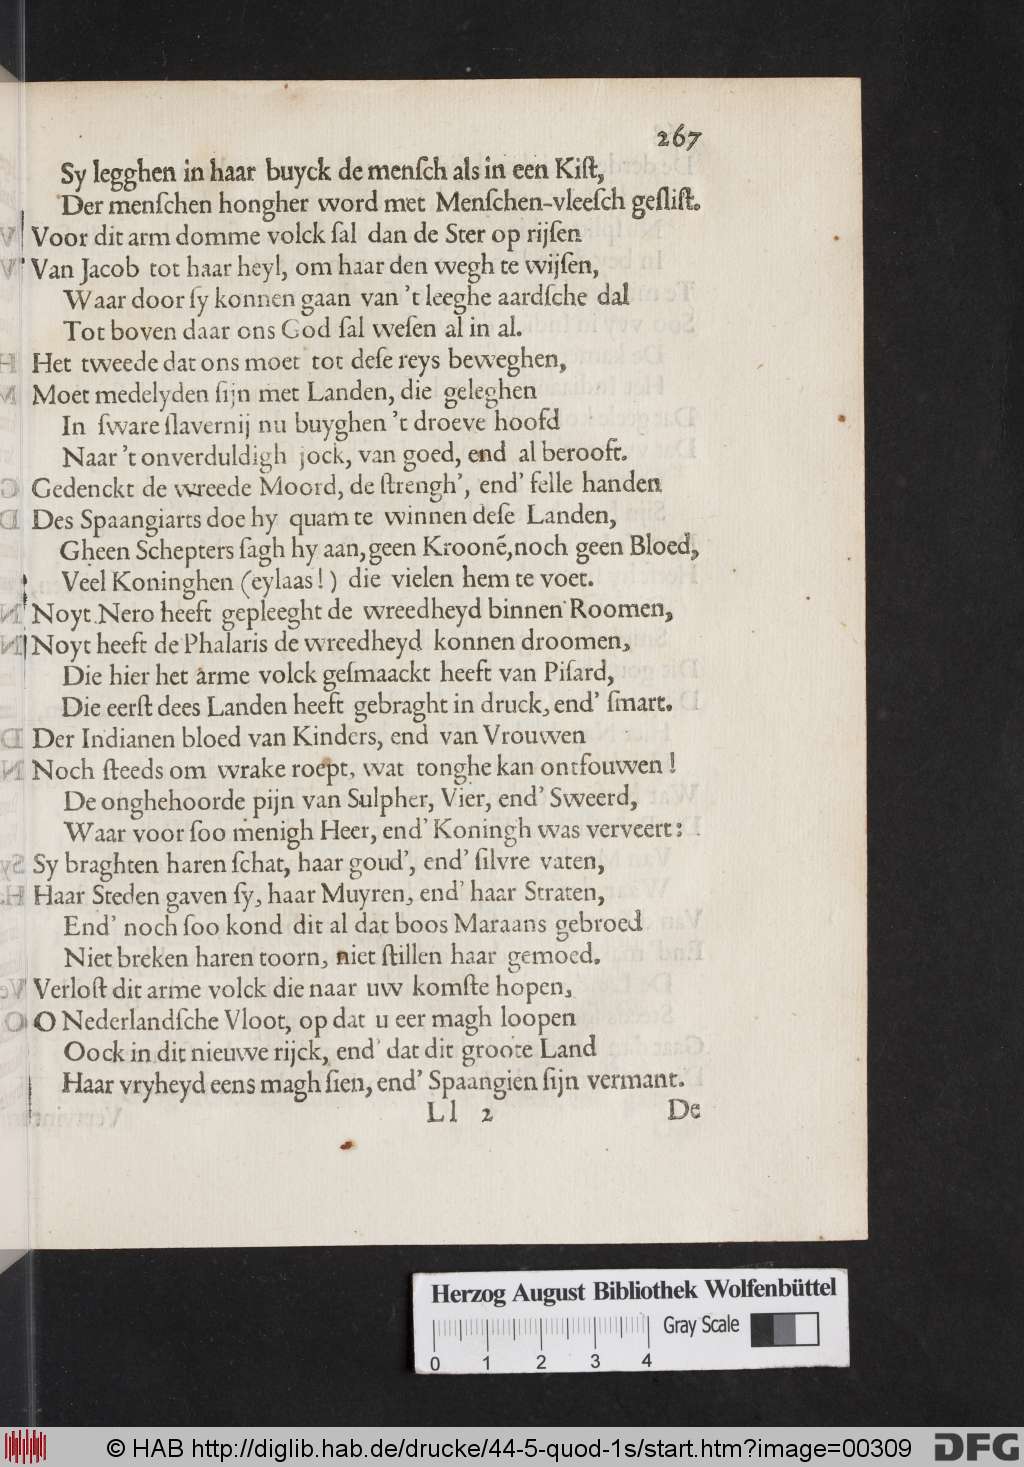 267
Sy legghen in haar buyck de menſch als in een Kiſt,
Der menſchen hongher word met Menſchen-vleeſch geſliſt.
Voor dit arm domme volck ſal dan de Ster op rijſen
Van Jacob tot haar heyl, om haar den wegh te wijſen,
Waar door ſy konnen gaan van 't leeghe aardſche dal
Tot boven daar ons God ſal weſen al in al.
Het tweede dat ons moet tot deſe reys beweghen,
Moet medelyden ſijn met Landen, die geleghen
In ſware ſlavernij nu buyghen 't droeve hoofd
Naar 't onverduldigh jock, van goed, end al berooft.
Gedenckt de wreede Moord, de ſtrengh', end' felle handen
Des Spaangiarts doe hy quam te winnen deſe Landen,
Gheen Schepters ſagh hy aan, geen Kroonē, noch geen Bloed,
Veel Koninghen (eylaas!) die vielen hem te voet.
Noyt Nero heeft gepleeght de wreedheyd binnen Roomen,
Noyt heeft de Phalaris de wreedheyd konnen droomen,
Die hier het arme volck geſmaackt heeft van Piſard,
Die eerſt dees Landen heeft gebraght in druck, end' ſmart.
Der Indianen bloed van Kinders, end van Vrouwen
Noch ſteeds om wrake roept, wat tonghe kan ontfouwen!
De onghehoorde pijn van Sulpher, Vier, end' Sweerd,
Waar voor ſoo menigh Heer, end' Koningh was verveert:
Sy braghten haren ſchat, haar goud', end' ſilvre vaten,
Haar Steden gaven ſy, haar Muyren, end' haar Straten,
End' noch ſoo kond dit al dat boos Maraans gebroed
Niet breken haren toorn, niet ſtillen haar gemoed.
Verloſt dit arme volck die naar uw komſte hopen,
O Nederlandſche Vloot, op dat u eer magh loopen
Oock in dit nieuwe rijck, end' dat dit groote Land
Haar vryheyd eens magh ſien, end' Spaangien ſijn vermant.
Ll 2 De
Herzog August Bibliothek Wolfenbüttel
Gray Scale
0 1 2 3 4
© HAB http://diglib.hab.de/drucke/44-5-quod-1s/start.htm?image=00309
DFG